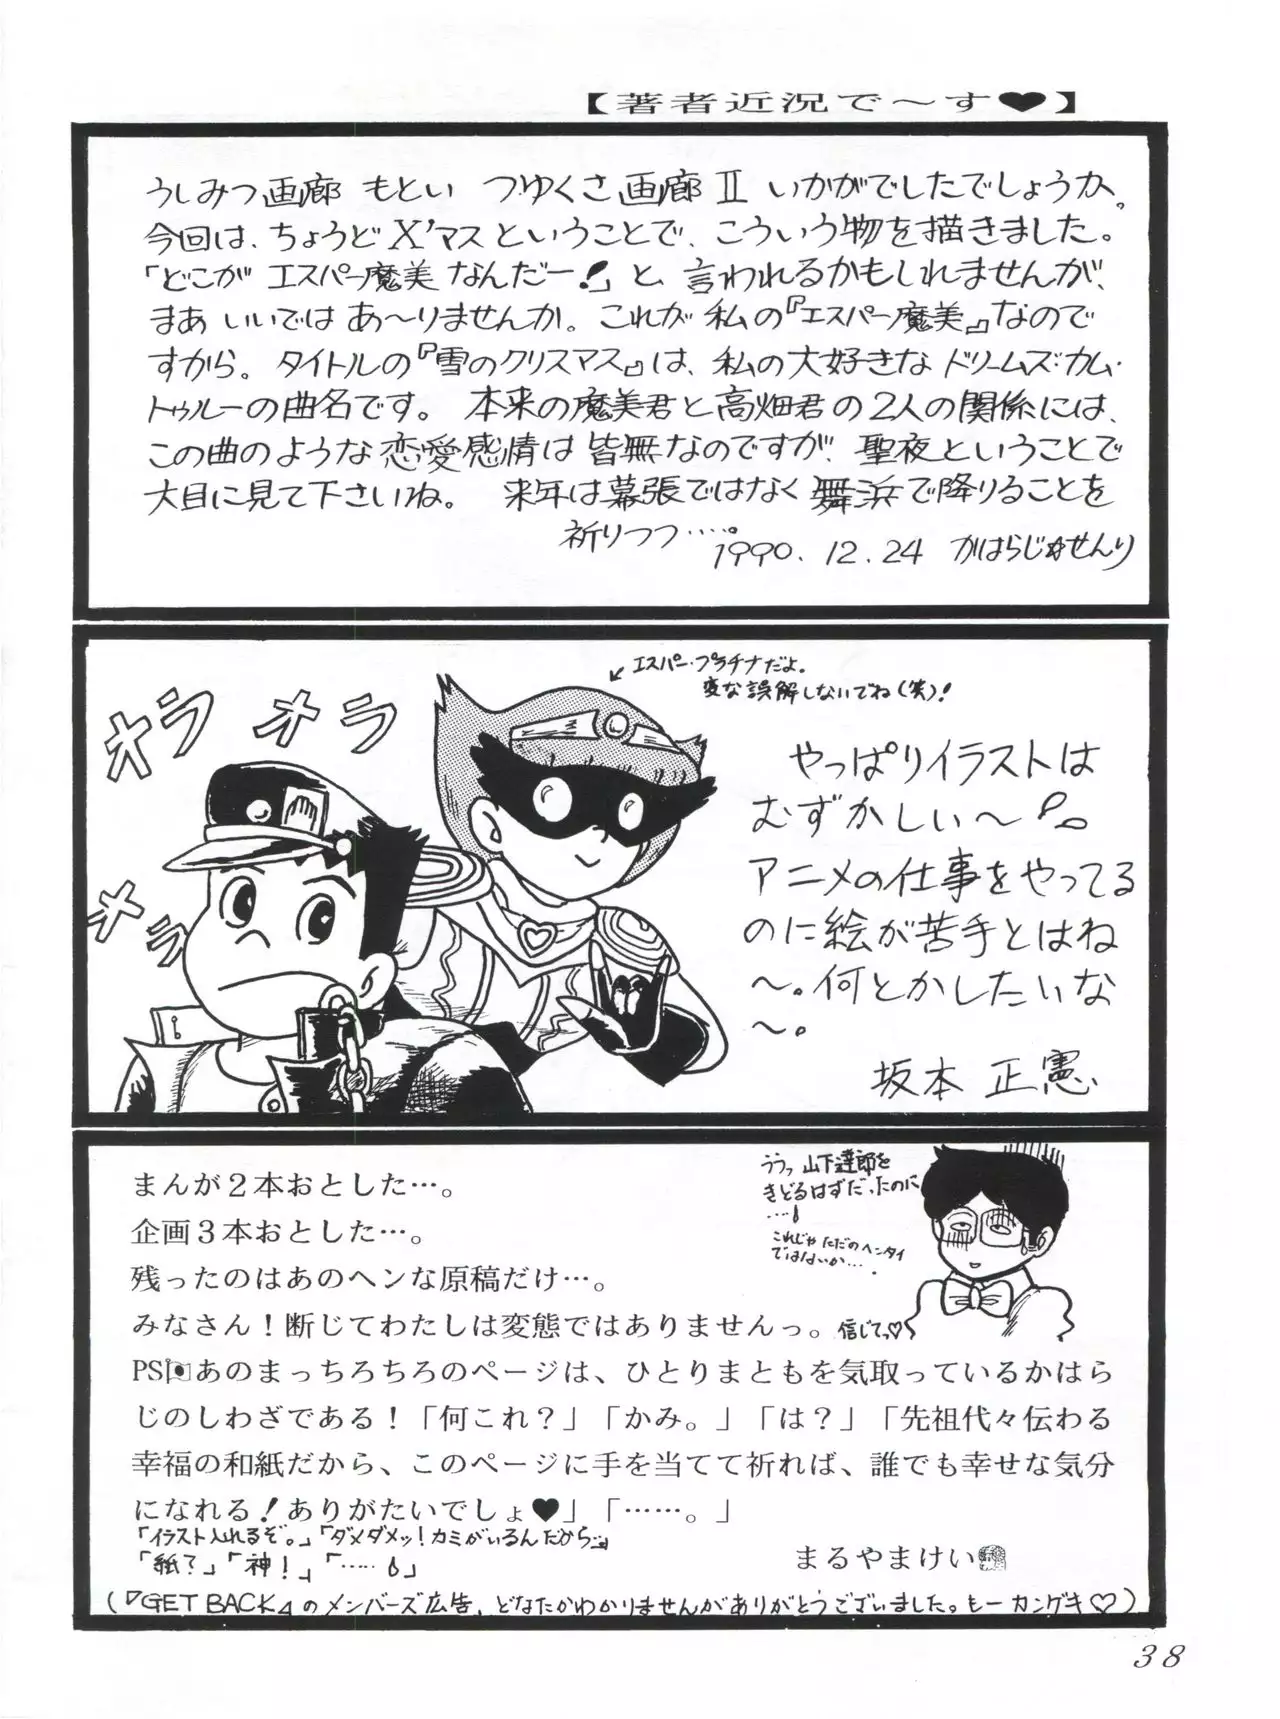 【著者近況で〜す♥】
うしみつ画廊 もとい つゆくさ画廊Ⅱ いかがでしたでしょうか。
今回は、ちょうどX'マスということで、こういう物を描きました。
「どこが エスパー魔美 なんだー!」と、言われるかもしれませんが、
まあ いいではあ〜りませんか。これが 私の『エスパー魔美』なので
すから。タイトルの『雪のクリスマス』は、私の大好きなドリームズ・カム・
トゥルーの曲名です。本来の魔美君と高畑君の2人の関係には、
この曲のような恋愛感情は皆無なのですが、聖夜ということで
大目に見て下さいね。 来年は幕張ではなく舞浜で降りることを
祈りつつ……。
1990.12.24 かはらじゅせんり
エスパー・プラチナだよ。
変な誤解しないでね(笑)!
オラ オラ
オラ
やっぱりイラストは
むずかしい〜。
アニメの仕事をやってる
のに絵が苦手とはね
〜。何とかしたいな
〜。
坂本 正憲
ううっ 山下達郎を
きどるはずだったのに
……!
これじゃ ただのヘンタイ
ではないか….
まんが2本おとした…。
企画3本おとした…。
残ったのはあのヘンな原稿だけ…。
みなさん!断じてわたしは変態ではありませんっ。信じてっ♡
PSあのまっちろちろのページは、ひとりまともを気取っているかはら
じのしわざである!「何これ?」「かみ。」「は?」「先祖代々伝わる
幸福の和紙だから、このページに手を当てて祈れば、誰でも幸せな気分
になれる!ありがたいでしょ♥」「……。」
「イラスト入れるぞ。」「ダメダメッ!カミがいるんだから。」
「紙?」「神!」「……!」
まるやまけい
(『GET BACK』のメンバーズ広告、どなたかわかりませんがありがとうございました。もーカンゲキ♡)
38